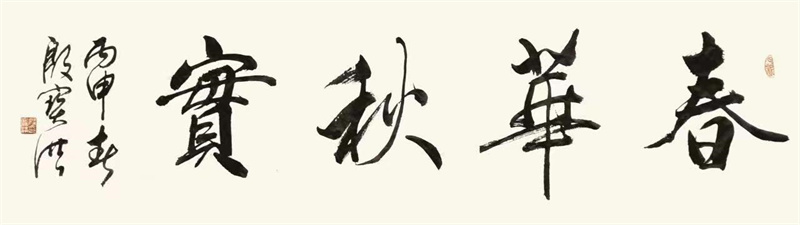 春華秋實
丙申春
殷寶洪